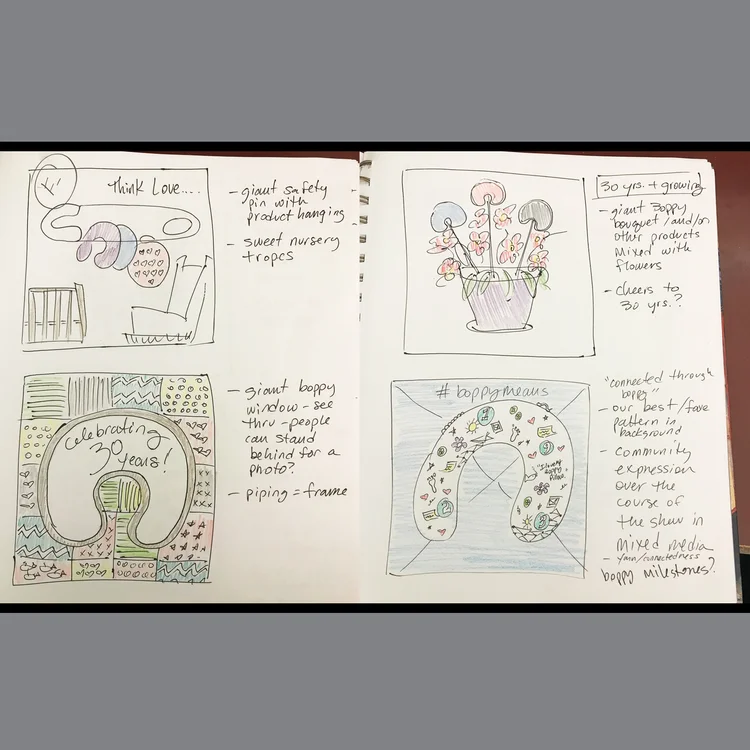 Think Love....
- giant safety
pin with
product hanging
- sweet nursery
tropes
Celebrating
30
years!
- giant boppy
window - see
thru - people
can stand
behind for a
photo?
- piping = frame
30 yrs. + growing
- giant Boppy
bouquet / and/or
other products
mixed with
flowers
- cheers to
30 yrs.?
#boppymeans
"connected through
boppy"
- our best/fave
pattern in
background
- community
expression
over the
course of
the show in
mixed media
- yarn/connectedness
boppy milestones?